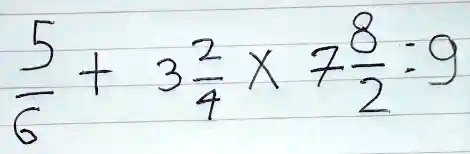 5/6 + 3 2/4 × 7 8/2 : 9